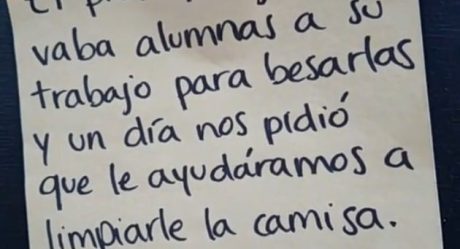 vaba alumnas a su
trabajo para besarlas
y un día nos pidió
que le ayudáramos a
limpiarle la camisa.